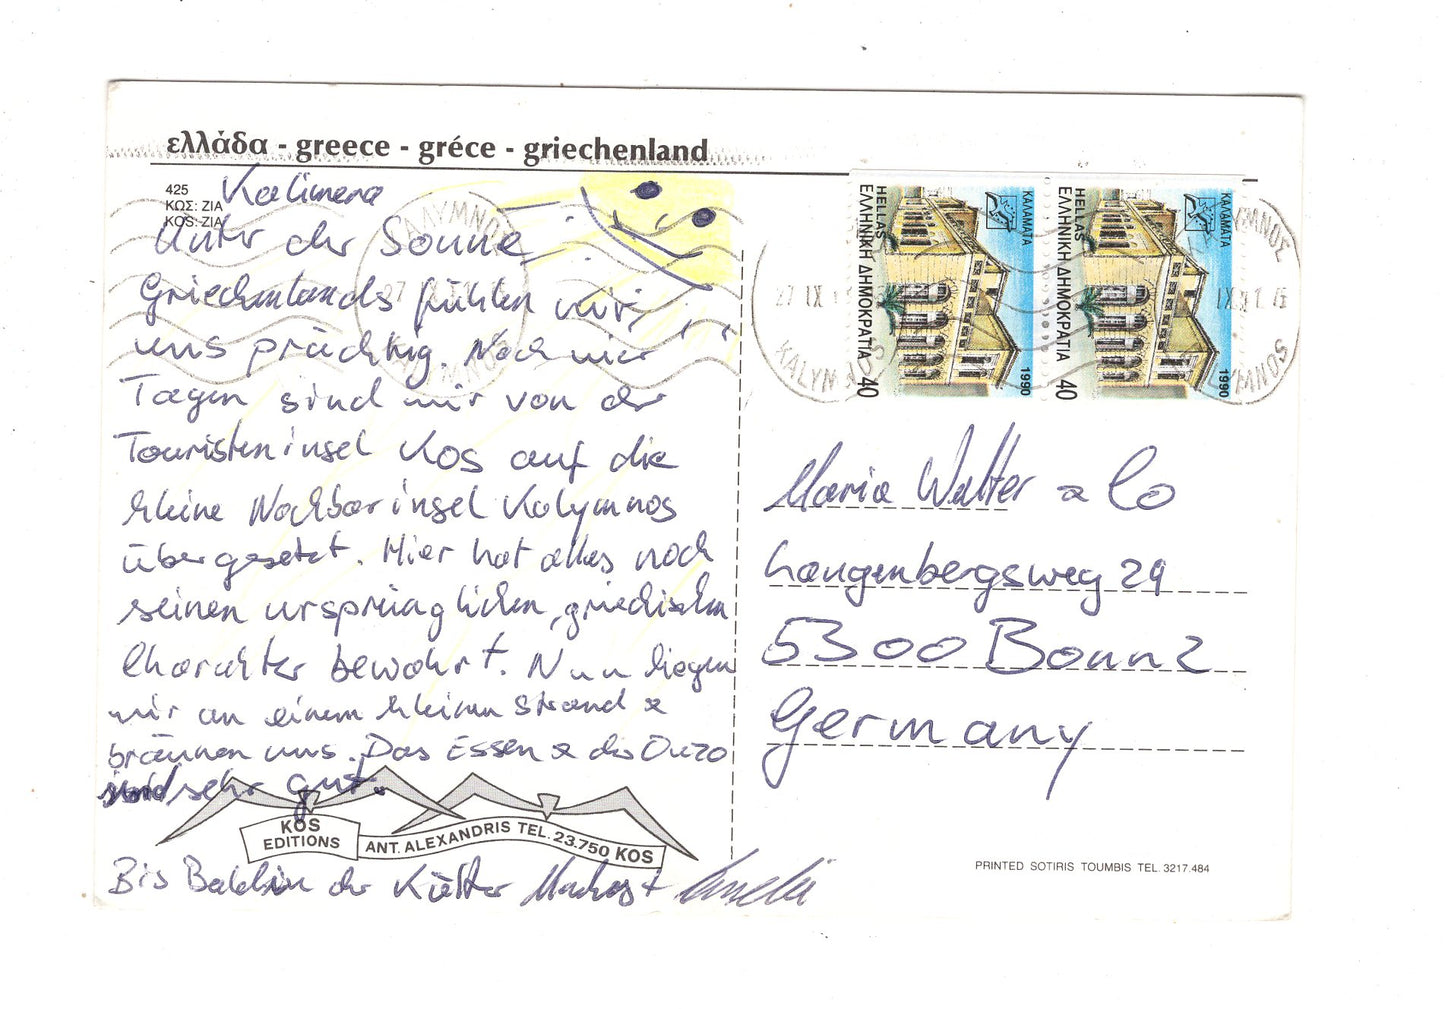 ελλάδα - greece - gréce - griechenland
425
ΚΩΣ: ΖΙΑ
KOS: ZIA
Kalimera
Unter der Sonne
Griechenlands fühlen wir
uns prächtig. Nach vier
Tagen sind wir von der
Touristeninsel Kos auf die
kleine Nachbarinsel Kalymnos
übergesetzt. Hier hat alles noch
seinen ursprünglichen, griechischen
Charakter bewahrt. Nun liegen
wir an einem kleinen Strand &
bräunen uns. Das Essen & der Ouzo
sind sehr gut.
KOS
EDITIONS
ANT. ALEXANDRIS TEL. 23.750 KOS
Bis Bald in der Kälte Markus +
ΚΑΛΥΜΝΟΣ
KALYMNOS
27 IX
HELLAS
ΕΛΛΗΝΙΚΗ ΔΗΜΟΚΡΑΤΙΑ
40
ΚΑΛΑΜΑΤΑ
1990
HELLAS
ΕΛΛΗΝΙΚΗ ΔΗΜΟΚΡΑΤΙΑ
40
ΚΑΛΑΜΑΤΑ
1990
Maria Walter & Co
Langenbergsweg 29
5300 Bonn 2
Germany
PRINTED SOTIRIS TOUMBIS TEL. 3217.484